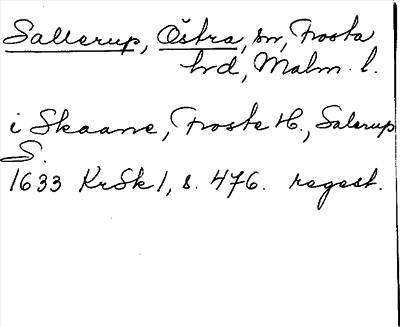 Sallerup, Östra, sn, Frosta
hrd, Malm. l.
i Skaane, Froste H., Salerup
S.
1633 KrSk 1, s. 476. regest.